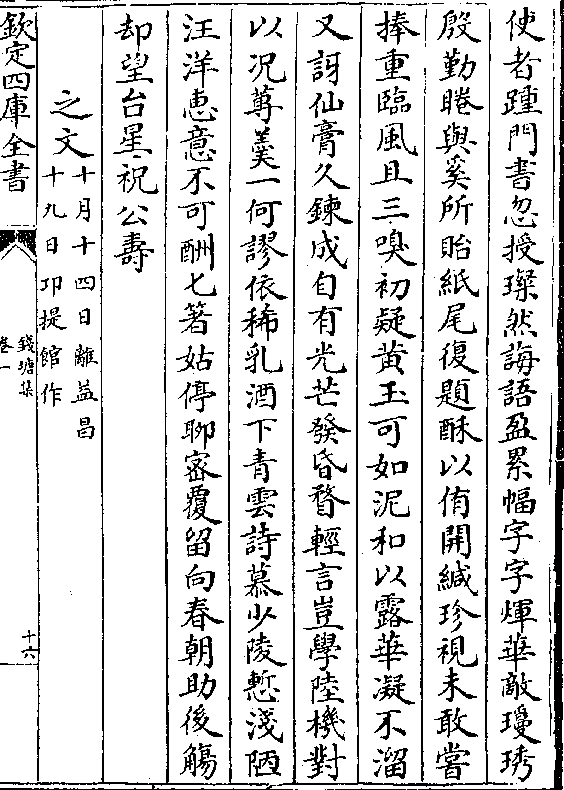 使者踵門書忽授璨然誨語盈累幅字字煇華敵瓊琇
殷勤睠與奚所貽紙尾復題酥以侑開緘珍視未敢嘗
捧重臨風且三嗅初疑黄玉可如泥和以露華凝不溜
又訝仙膏久鍊成自有光芒發昏瞀輕言豈學陸機對
以况蓴羮一何謬依稀乳酒下青雲詩慕少陵慙淺陋
汪洋恵意不可酬匕著姑停聊宻覆留向春朝助後觴
却望台星祝公壽
之文
十月十四日離益昌
十九日卭提館作
欽定四庫全書
錢塘集
卷一
十六